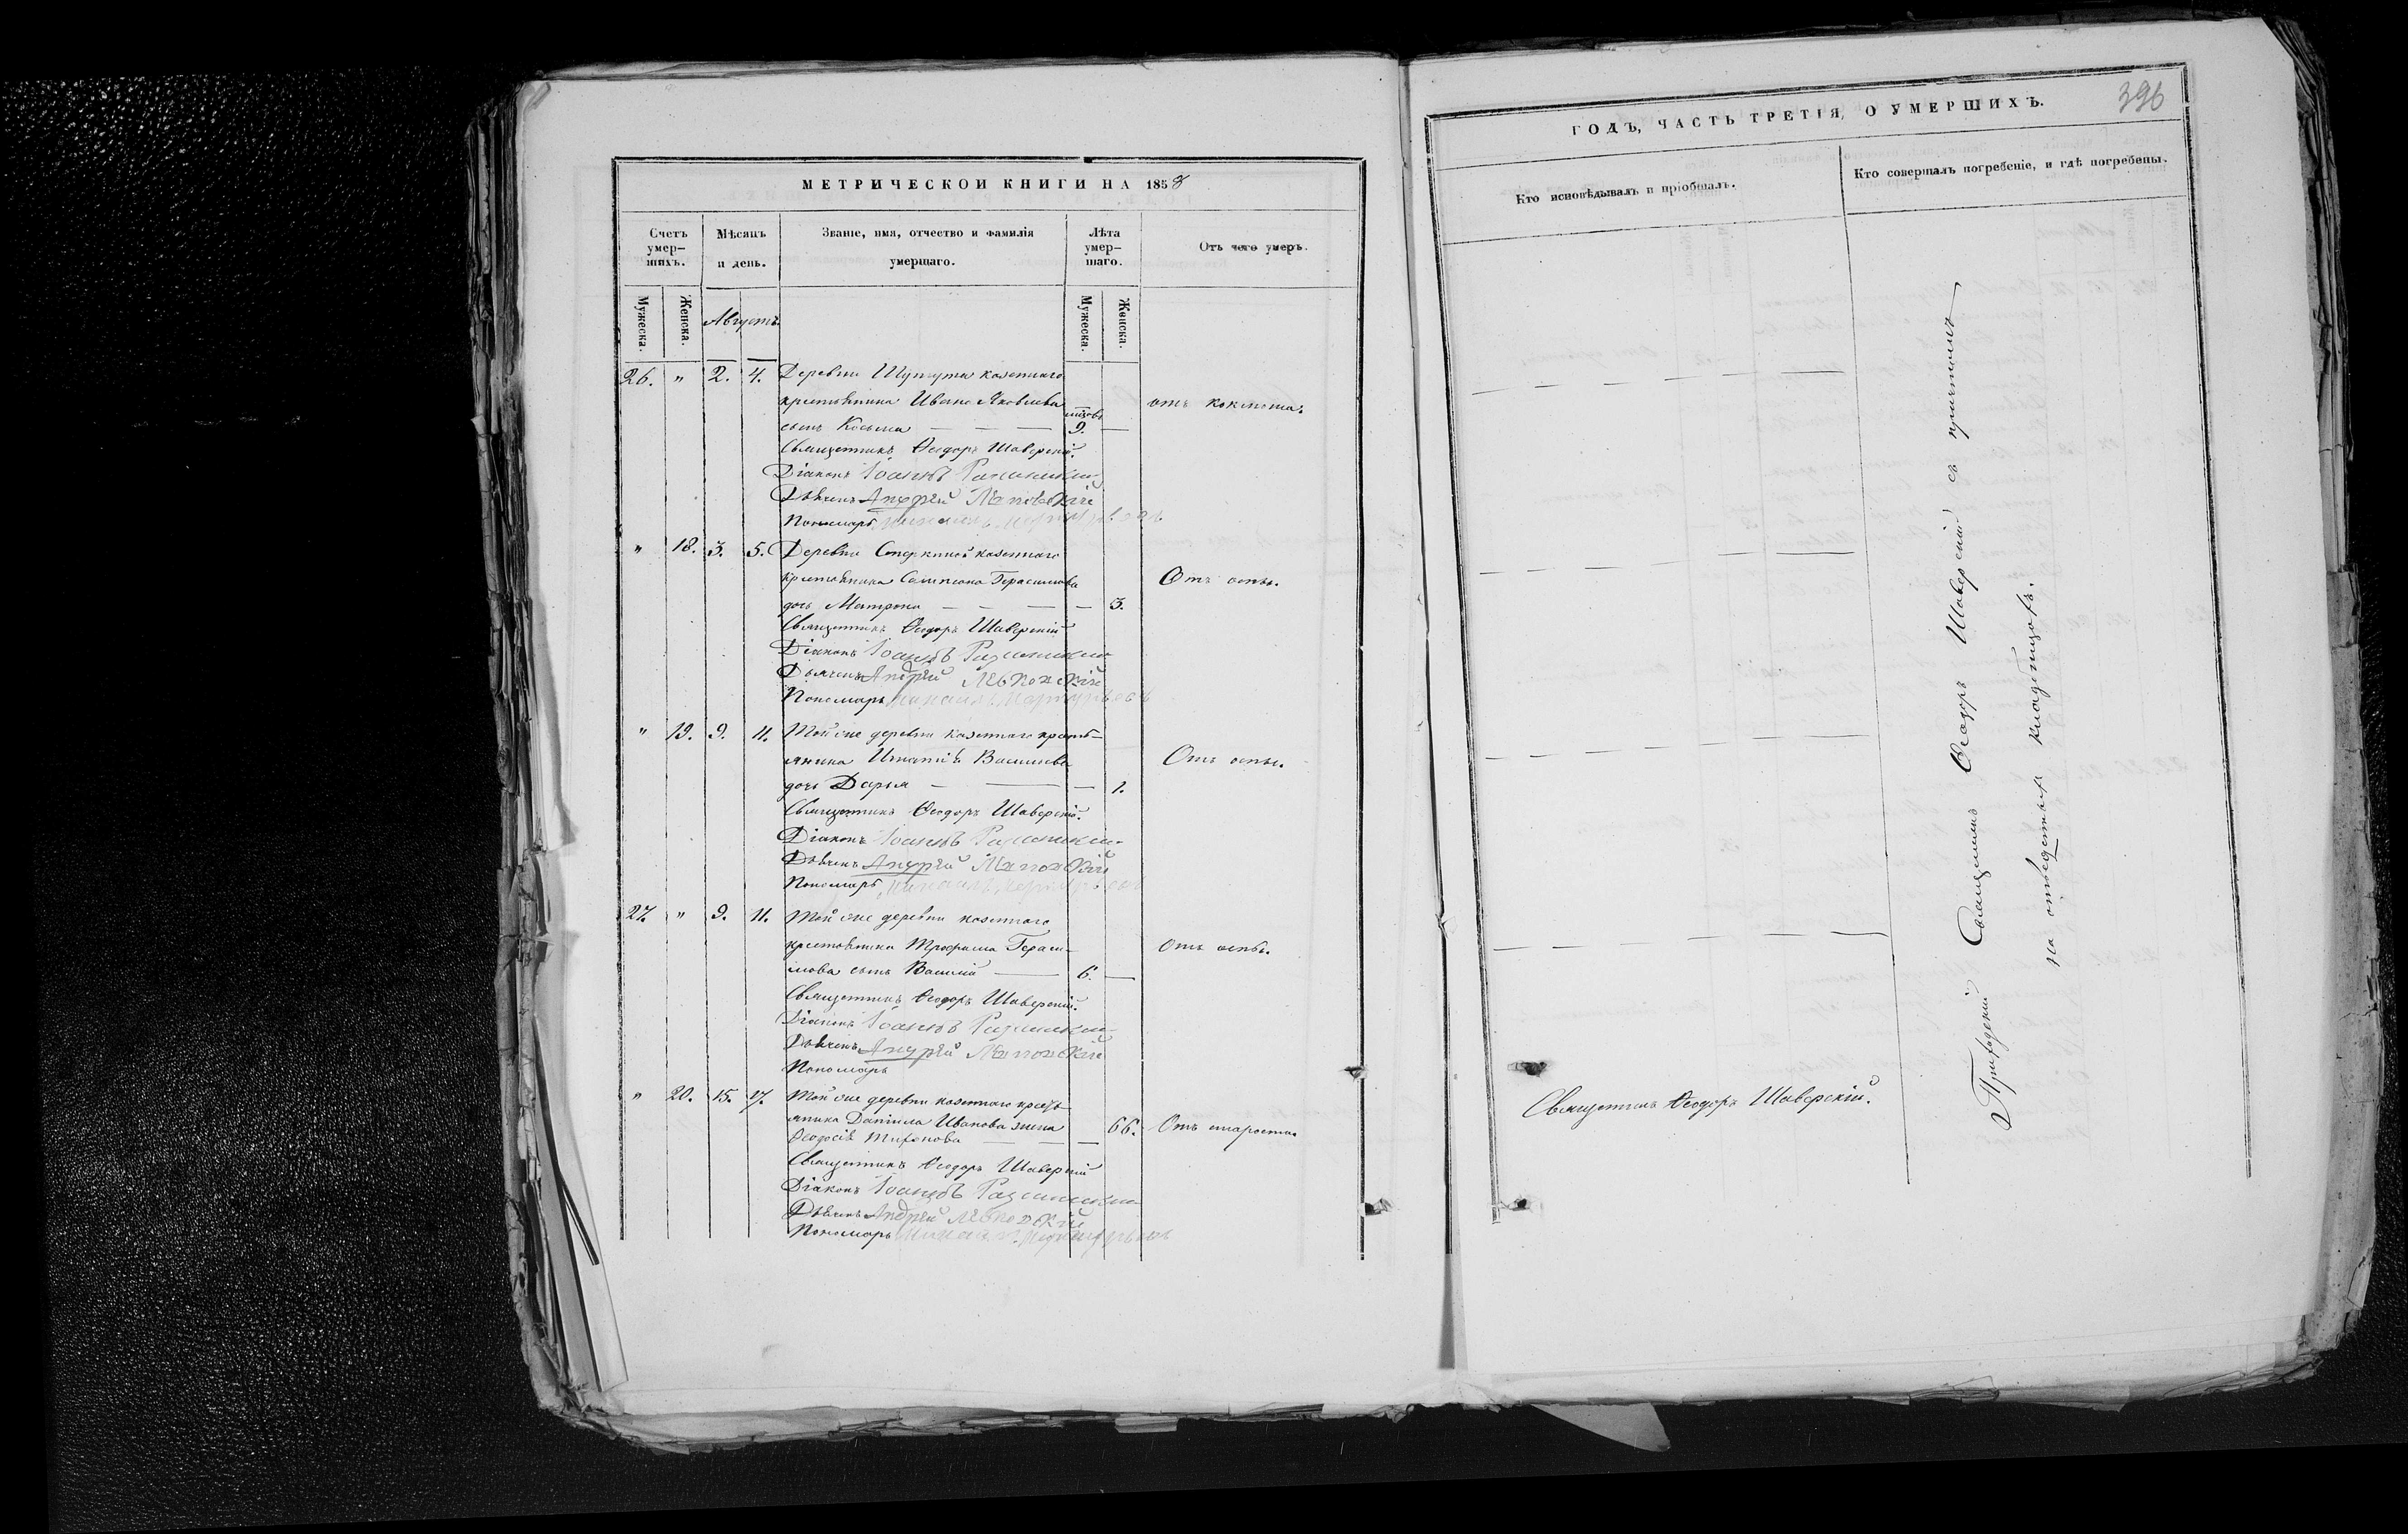 МЕТРИЧЕСКОЙ КНИГИ НА 1858
Счетъ умер-шихъ.
Мѣсяцъ и день.
Званіе, имя, отчество и фамилія умершаго.
Лѣта умер-шаго.
Отъ чего умеръ.
Мужеска.
Женска.
Августъ
Мужеска.
Женска.
26. " 2. 4. Деревни казеннаго
крестьянина Ивана Яковлева отъ коклюша.
сынъ Косьма — — — 9. —
Священникъ Ѳеодоръ Шаверскій.
Діаконъ Іоаннъ
Дьячекъ Андрей
Пономарь Михаилъ
" 18. 3. 5. Деревни казеннаго
крестьянина Сампсона Герасимова Отъ оспы.
дочь Матрона — — — — 3.
Священникъ Ѳеодоръ Шаверскій
Діаконъ Іоаннъ
Дьячекъ Андрей
Пономарь Михаилъ
" 19. 9. 11. Той же деревни казеннаго кресть-
янина Игнатія Васильева Отъ оспы.
дочь Дарья — — — 1.
Священникъ Ѳеодоръ Шаверскій.
Діаконъ Іоаннъ
Дьячекъ Андрей
Пономарь Михаилъ
27. " 9. 11. Той же деревни казеннаго
крестьянина Трофима Гераси- Отъ оспы.
мова сынъ Василій — 6. —
Священникъ Ѳеодоръ Шаверскій.
Діаконъ Іоаннъ
Дьячекъ Андрей
Пономарь
" 20. 15. 17. Той же деревни казеннаго кресть-
янина Даніила Иванова жена 66. Отъ старости.
Ѳеодосія Тихонова — — —
Священникъ Ѳеодоръ Шаверскій
Діаконъ Іоаннъ
Дьячекъ Андрей
Пономарь Михаилъ
ГОДЪ, ЧАСТЬ ТРЕТІЯ, О УМЕРШИХЪ.
396
Кто исповѣдывалъ и пріобщалъ.
Кто совершалъ погребеніе, и гдѣ погребены.
Священникъ Ѳеодоръ Шаверскій.
Приходскій Священникъ Ѳеодоръ Шаверскій съ причтомъ
на отведенныхъ кладбищахъ.